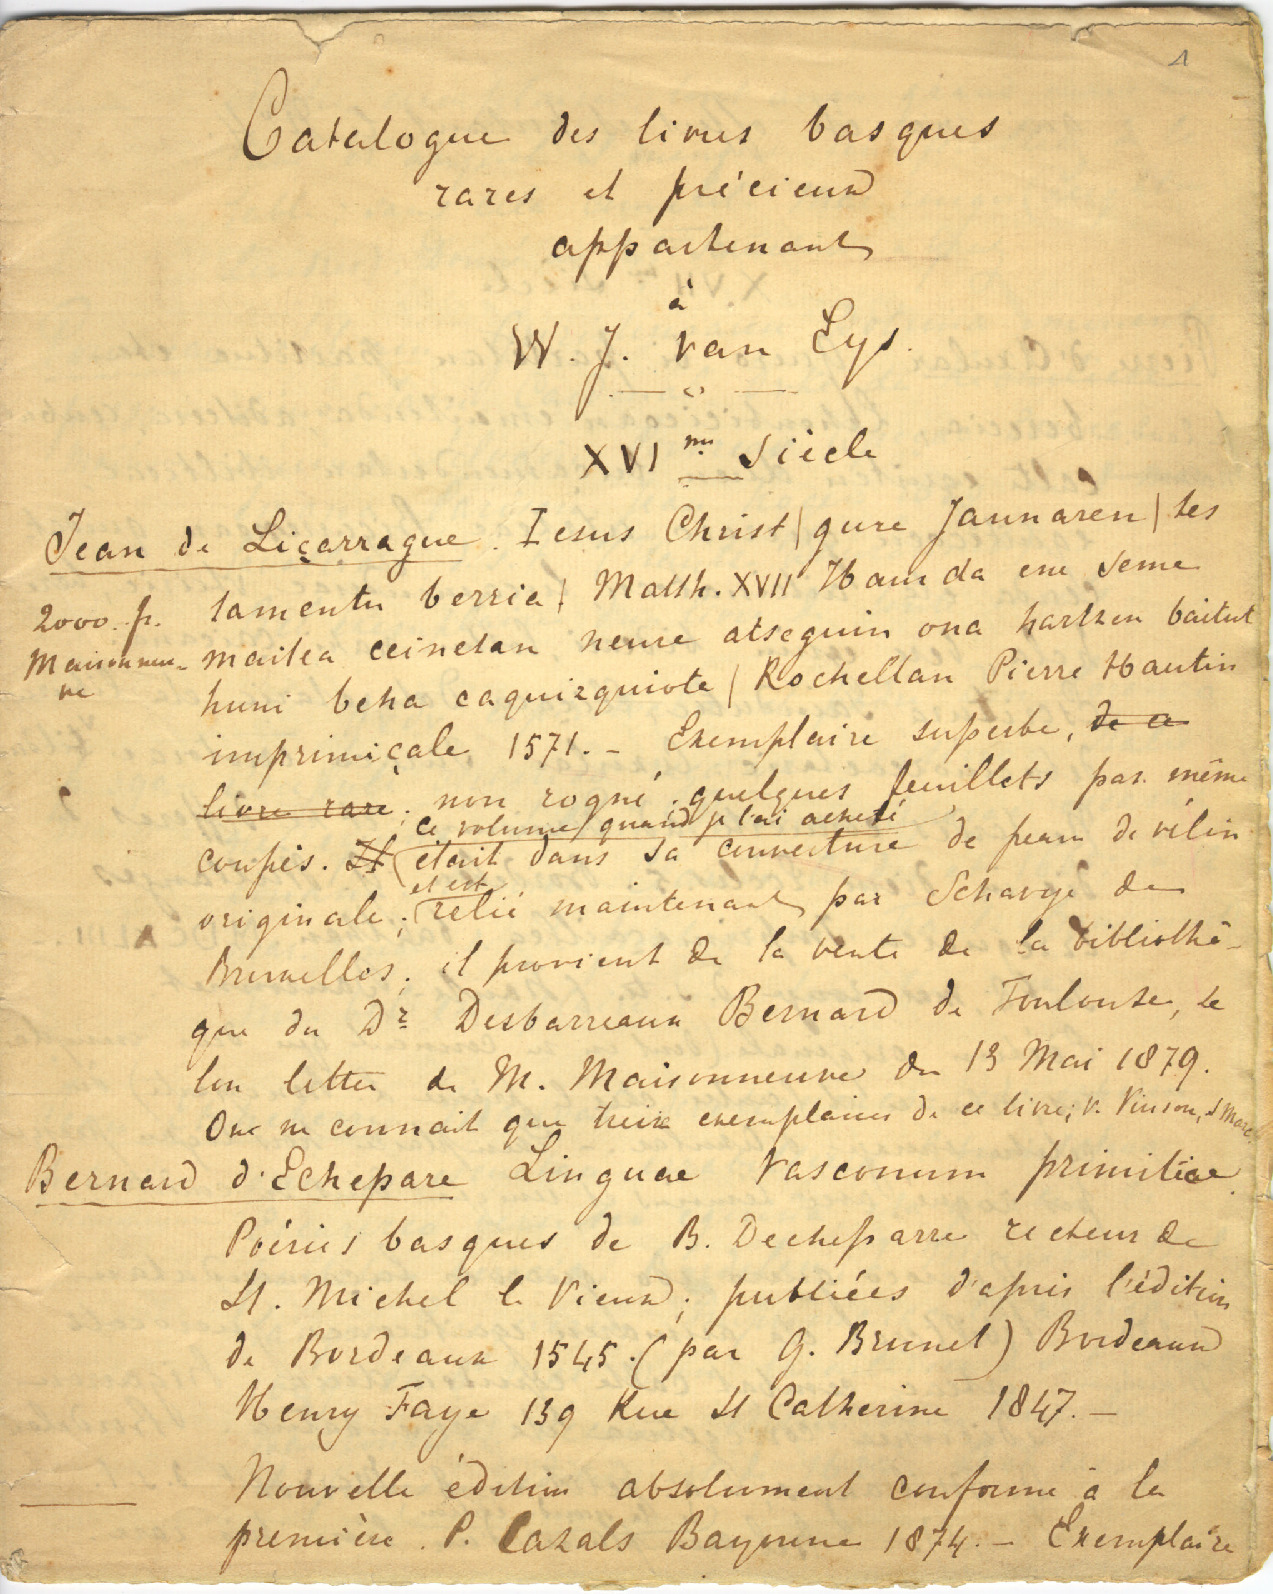 1
Catalogue des livres basques
rares et précieux
appartenant
à
W. J. van Eys.
XVI me Siècle
Jean de Liçarrague. Iesus Christ | gure Jaunaren | tes
tamentu berria | Matth. XVII Haur da ene seme
2000 fr.
Maisonneu-
ve
maitea ceinetan neure atseguin ona hartzen baitut
huni beha çaquizquiote | Rochellan Pierre Hautin
imprimiçale 1571. — Exemplaire superbe, de ce
livre rare; non rogné, quelques feuillets pas même
ce volume, quand je l'ai acheté
coupés. Il était dans sa couverture de peau de vélin
et est
originale; relié maintenant par Schavye de
Bruxelles; il provient de la vente de la bibliothè-
que du Dr Desbarreaux Bernard de Toulouse, se
lon lettre de M. Maisonneuve du 13 Mai 1879.
On ne connait que treize exemplaires de ce livre; v. Vinson,
Bernard d'Echepare Linguae Vasconum primitiae.
Poésies basques de B. Decheparre recteur de
St. Michel le Vieux; publiées d'après l'édition
de Bordeaux 1545. (par G. Brunet) Bordeaux
Henry Faye 139 Rue St Catherine 1847. —
Nouvelle édition absolument conforme à la
première. P. Cazals Bayonne 1874. — Exemplaire